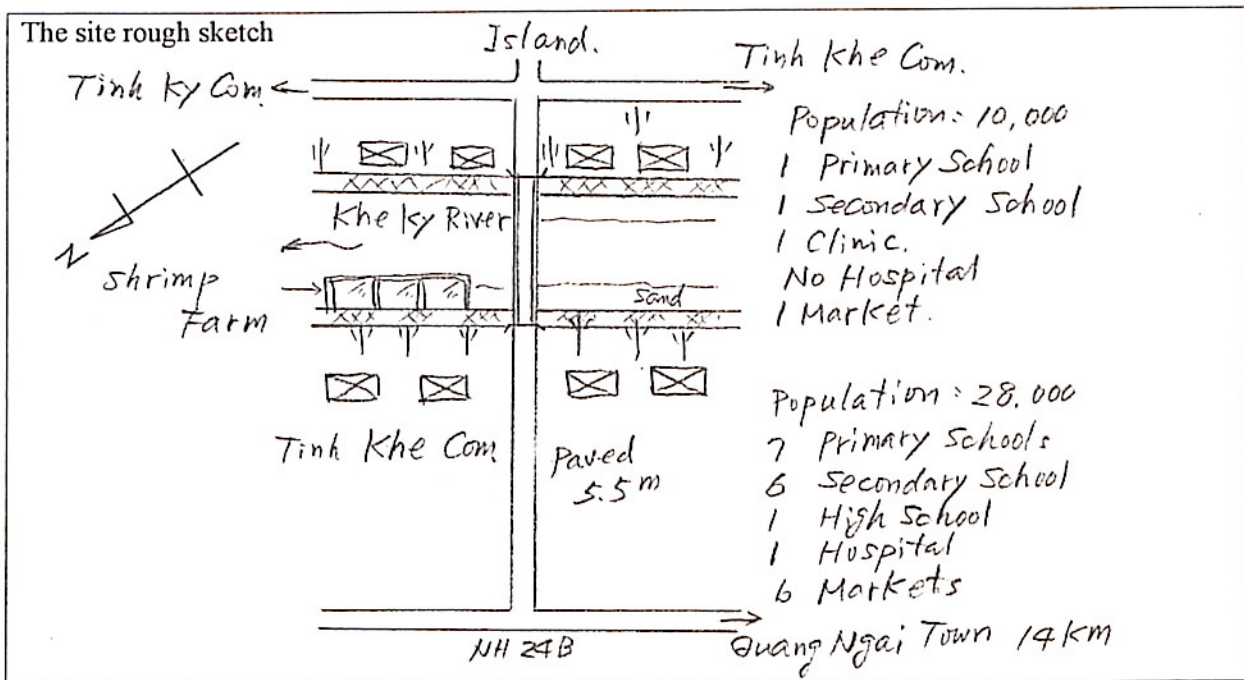 The site rough sketch
Island.
Tinh Ky Com.
Tinh Khe Com.
Population: 10,000
1 Primary School
1 Secondary School
1 Clinic.
No Hospital
1 Market.
Khe Ky River
N
Shrimp
Farm
Sand
Tinh Khe Com.
Paved
5.5 m
Population: 28,000
7 Primary Schools
6 Secondary School
1 High School
1 Hospital
6 Markets
NH 24B
Quang Ngai Town 14 km